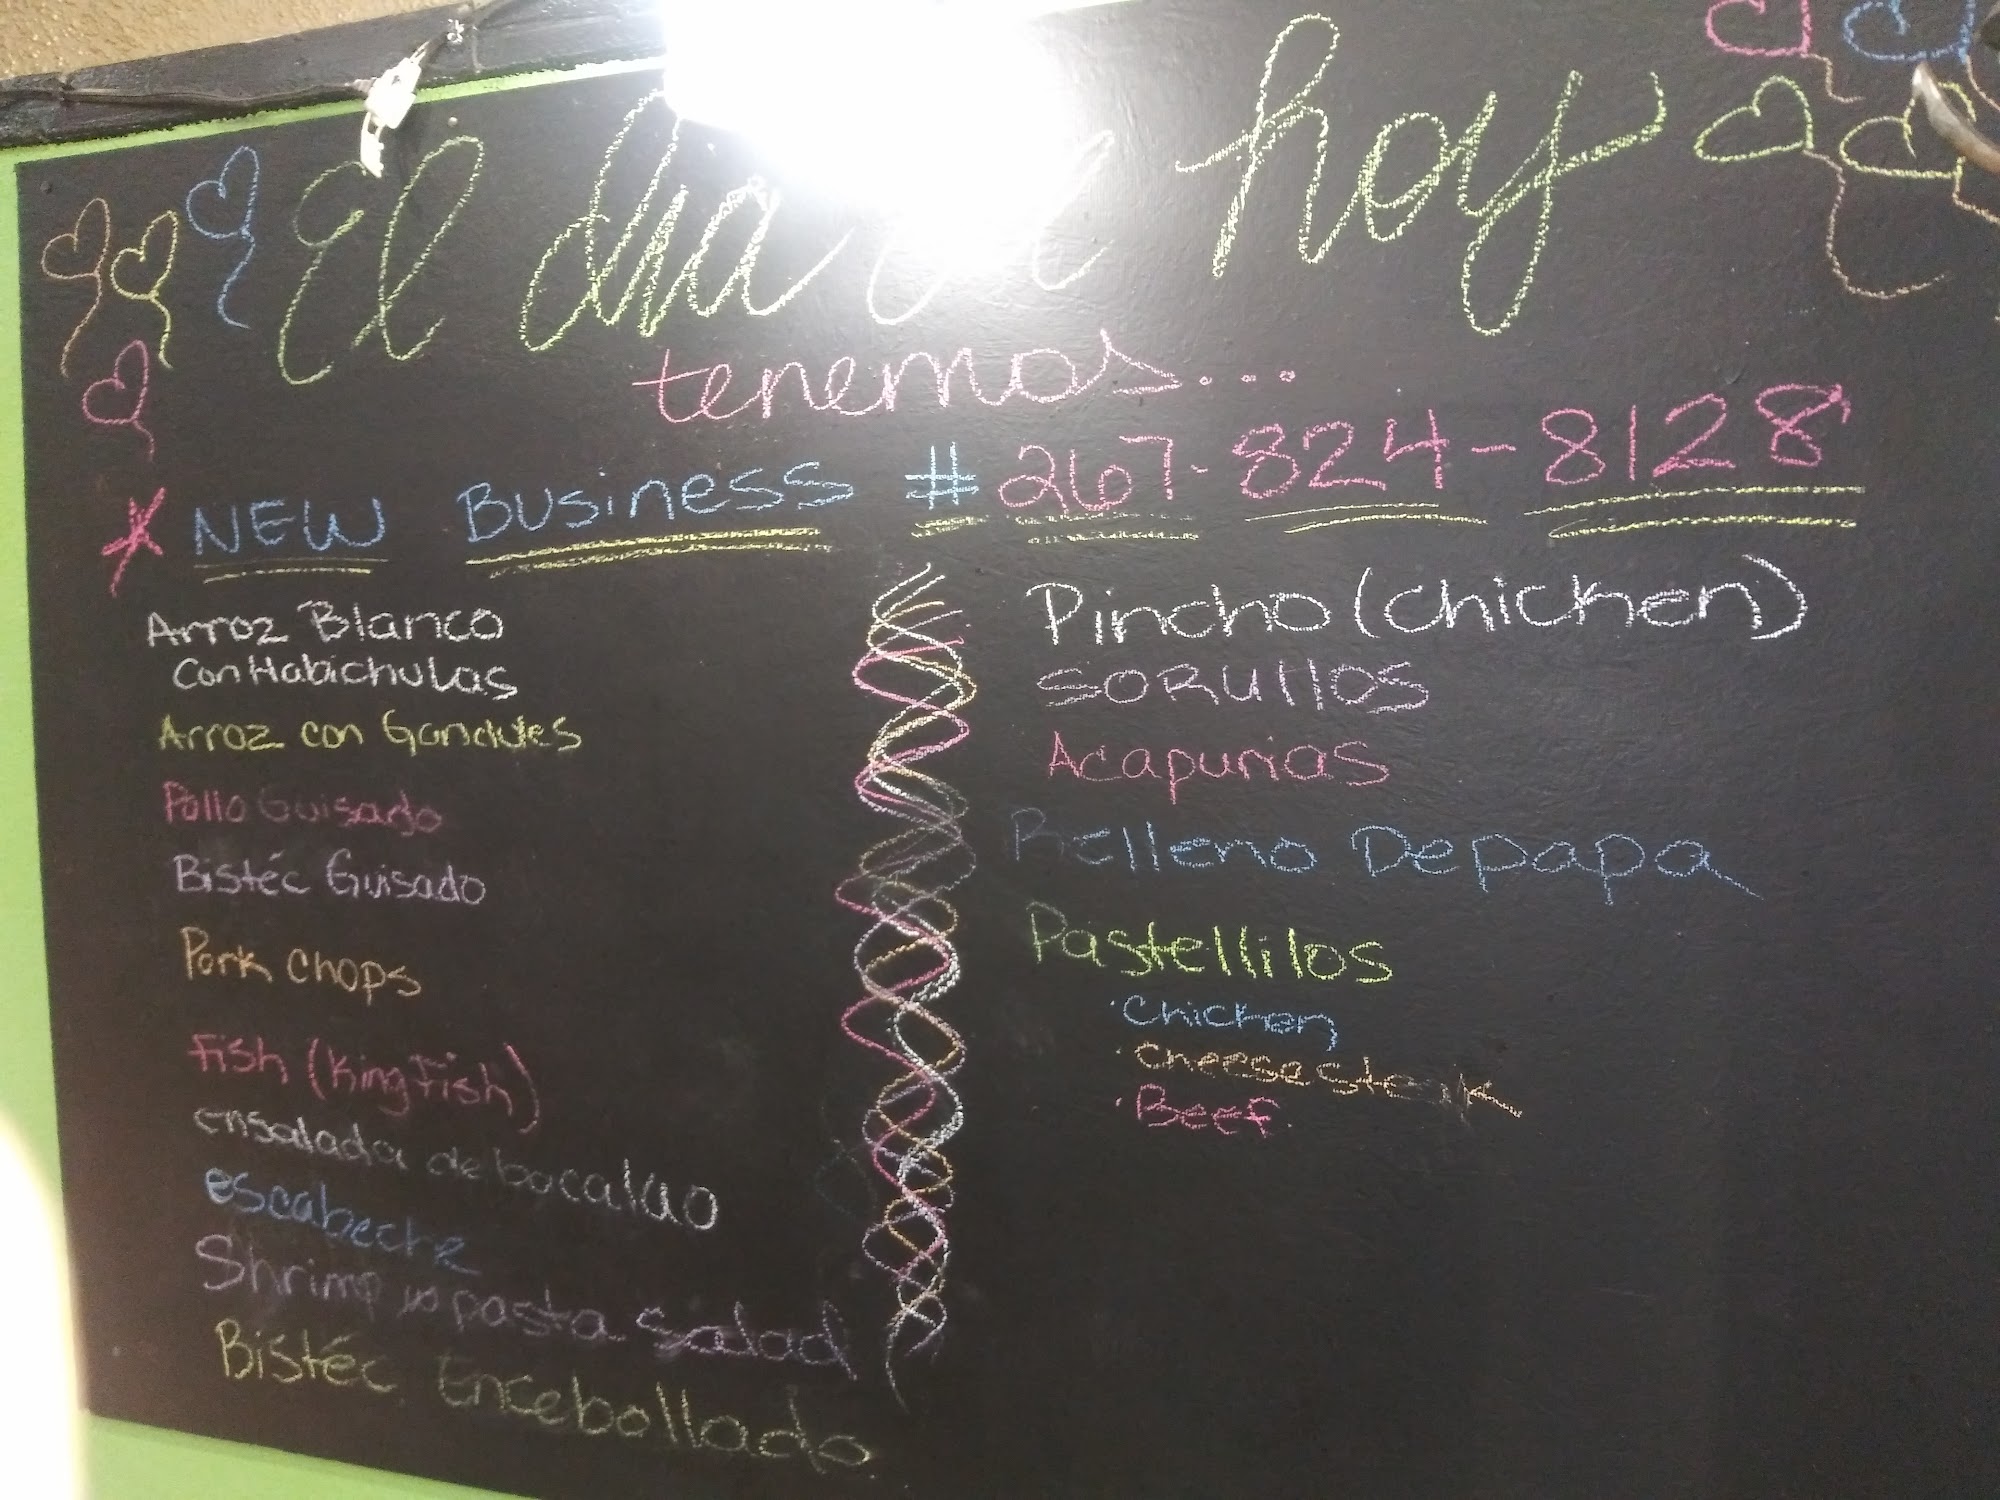 El dia de hoy
tenemos...
* NEW Business # 267-824-8128
Arroz Blanco
Con Habichulas
Arroz con Gandules
Pollo Guisado
Bistéc Guisado
Pork Chops
Fish (King Fish)
ensalada de bacalao
escabeche
Shrimp w pasta salad
Bistéc Encebollado
Pincho (chicken)
SORUllOS
Acapurias
Relleno De papa
Pastellilos
· Chicken
· Cheesesteak
· Beef